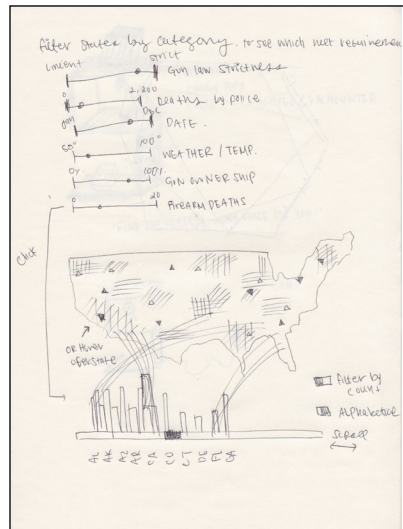 Filter States by Category. to see which meet requiremen
Lineient strict
Gun law strictness
0 2,200
Deaths by police
Jan Dec
DATE.
50° 100°
WEATHER / TEMP.
0% 100%
GUN OWNERSHIP
0 20
FIREARM DEATHS
click
OR Hover
over state
Filter by
count
Alphabetical
Scroll
AL AK AZ AR CA CO CT DE FL GA